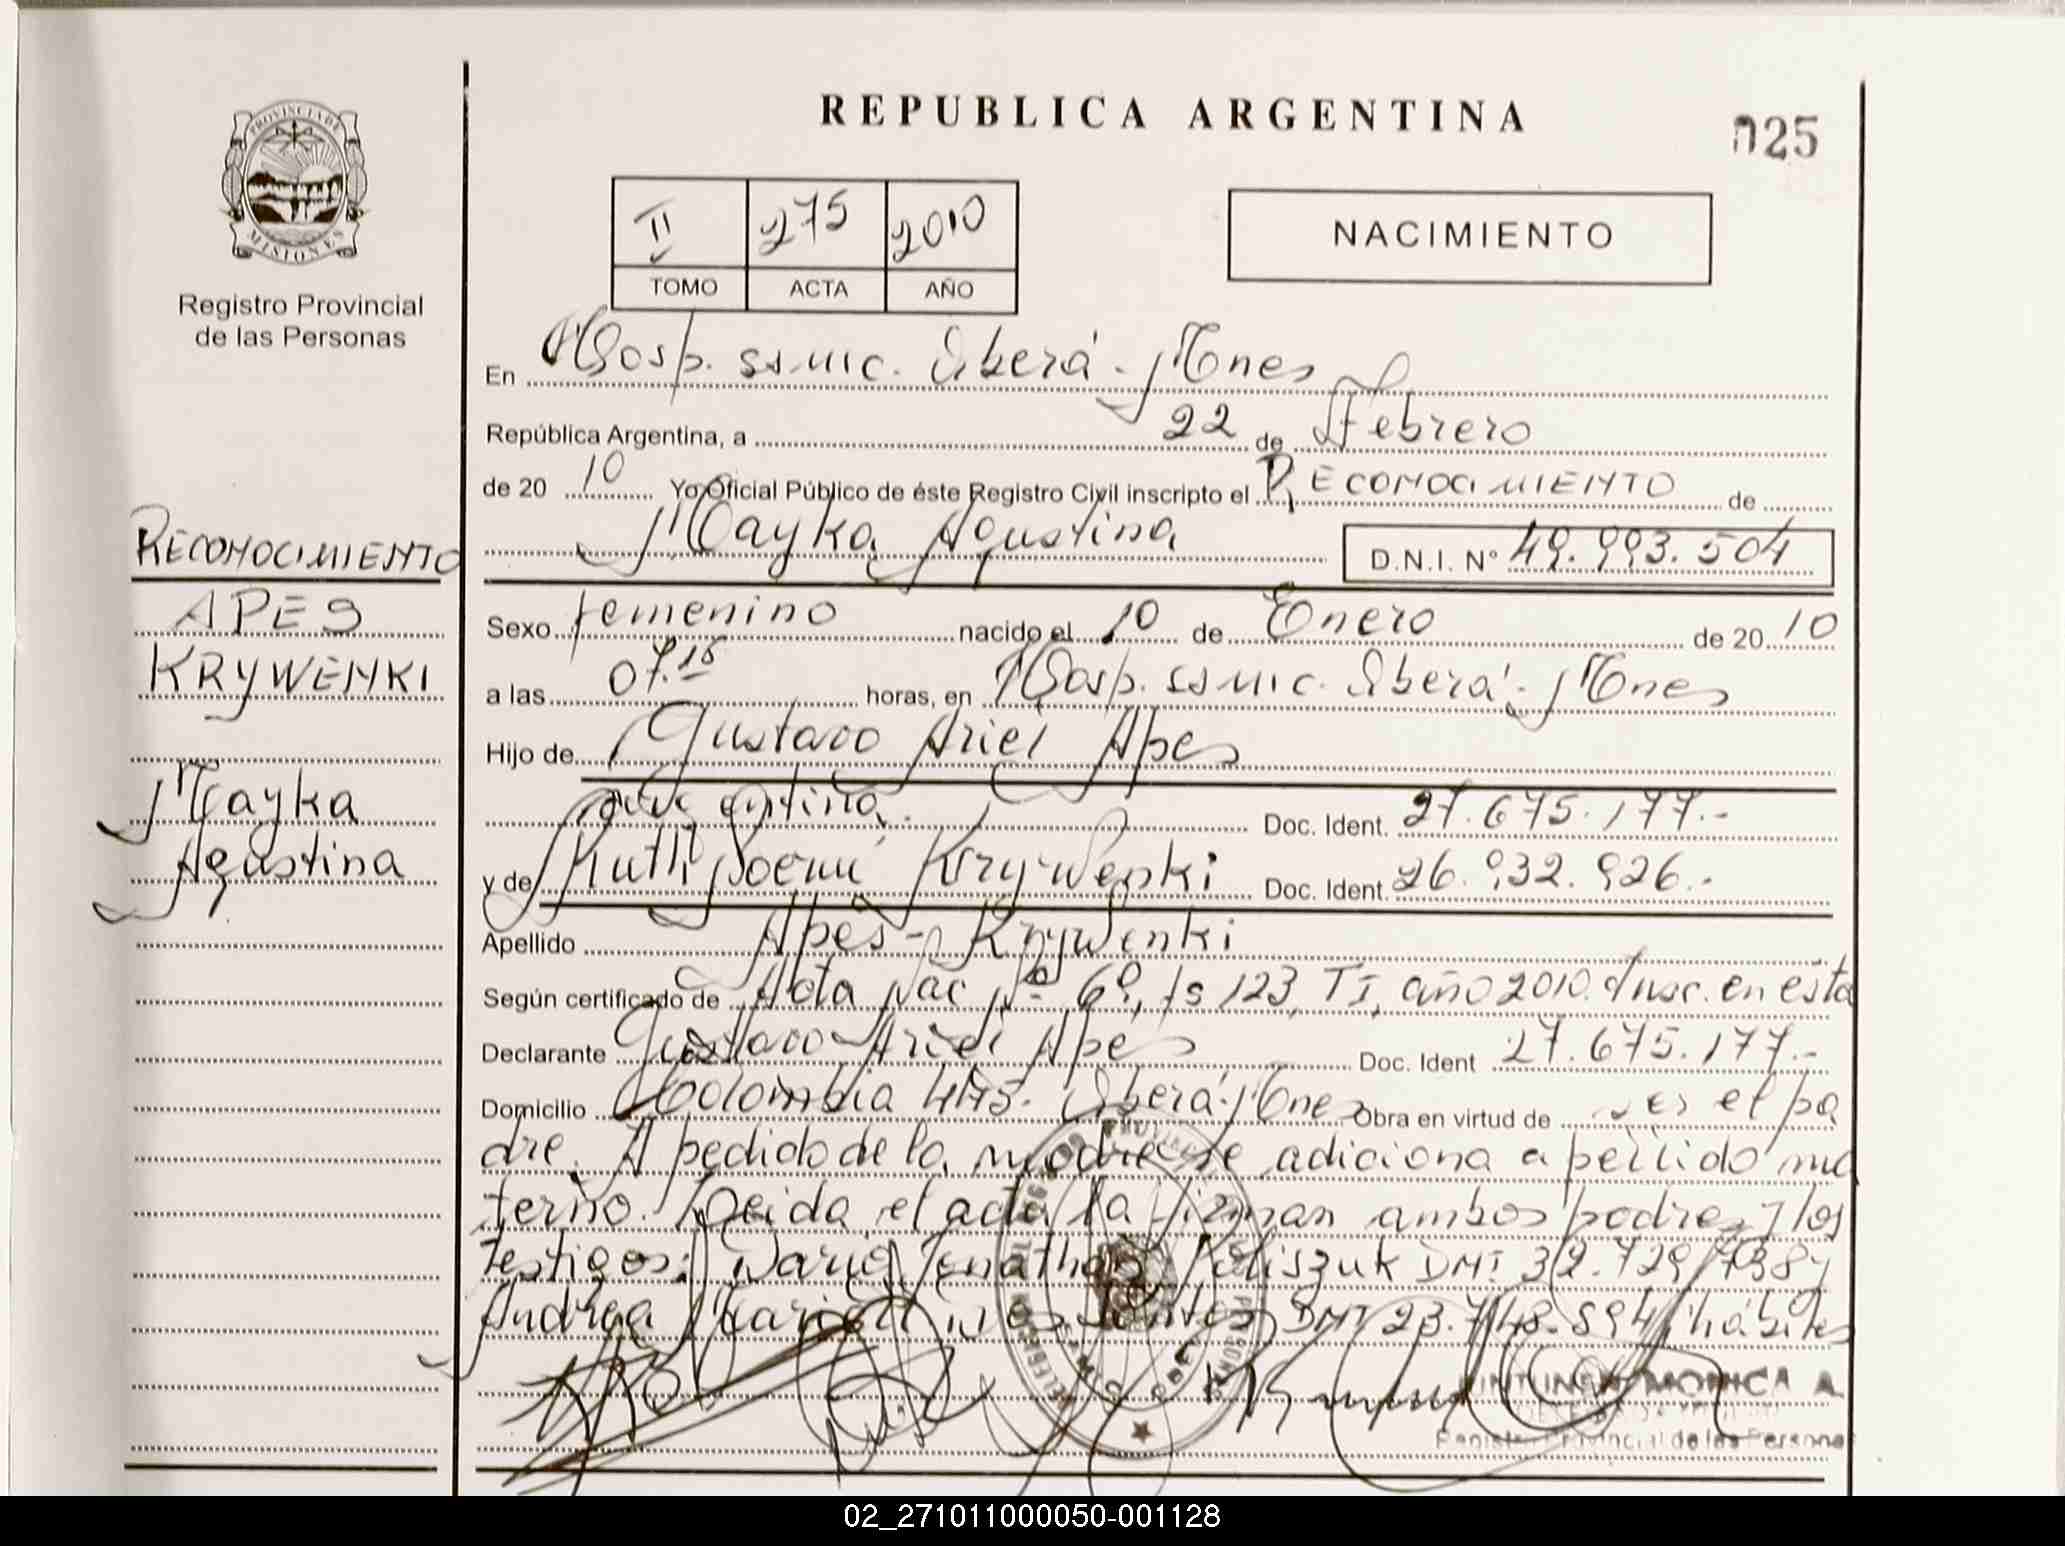 REPUBLICA ARGENTINA
025
PROVINCIA DE
MISIONES
Registro Provincial
de las Personas
II 275 2010
TOMO ACTA AÑO
NACIMIENTO
En Hosp. ssmic. Oberá - Mnes
República Argentina, a 22 de Febrero
de 20 10 Yo Oficial Público de éste Registro Civil inscripto el RECONOCIMIENTO de
Mayka Agustina D.N.I. Nº 49.993.504
RECONOCIMIENTO
APES
KRYWENKI
Mayka
Agustina
Sexo femenino nacido el 10 de Enero de 20 10
a las 07.15 horas, en Hosp. ssmic. Oberá - Mnes
Hijo de Gustavo Ariel Apes
argentina. Doc. Ident. 27.675.177.-
y de Ruth Noemí Krywenki Doc. Ident. 26.932.926.-
Apellido Apes - Krywenki
Según certificado de Acta Nac Nº 69, fs 123, TI, año 2010. Insc. en ésta
Declarante Gustavo Ariel Apes Doc. Ident 27.675.177.-
Domicilio Colombia 475. Oberá - Mnes Obra en virtud de ser el pa
dre. A pedido de la madre se adiciona apellido ma
terno. Leida el acta la firman ambos padres y los
testigos: Dario Jonathan DNI 32.729.738 y
Andrea DNI 23.748.894 hábiles
MONICA A.
Registro Provincial de las Personas
02_271011000050-001128